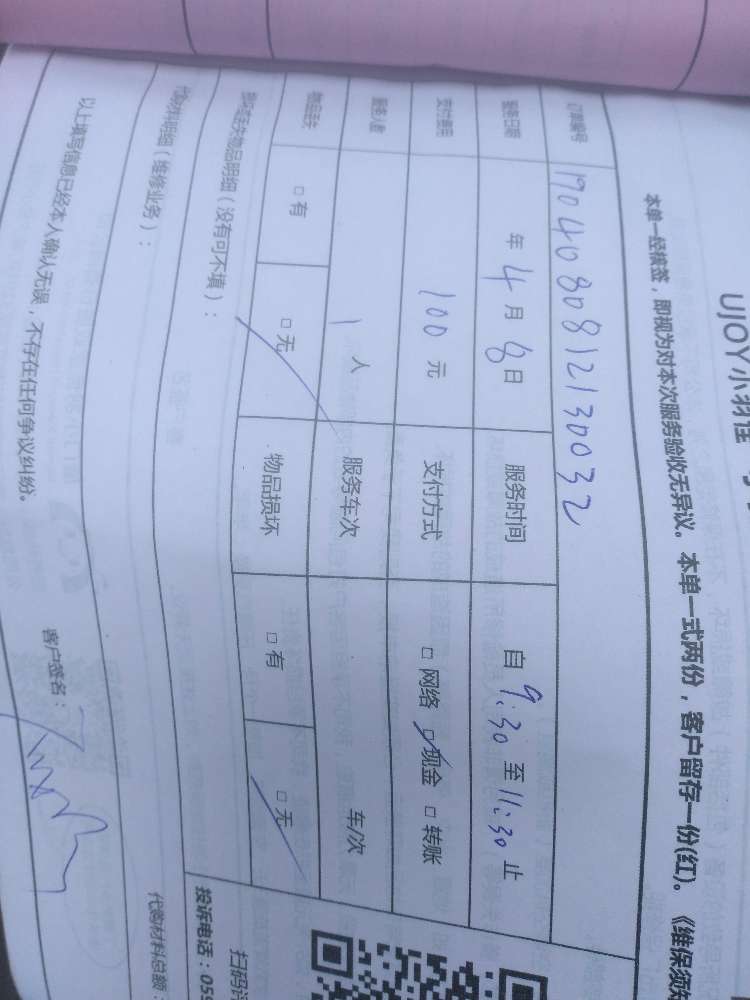 UJOY小羽佳
本单一经接签，即视为对本次服务验收无异议。本单一式两份，客户留存一份(红)。《维保须
订单编号 1904080812130032
服务日期 年 4月 8日 服务时间 自 9:30 至 11:30 止
支付费用 100 元 支付方式 □ 网络 □ 现金 □ 转账
服务人数 1 人 服务车次 车/次
物品丢失 □ 有 □ 无 物品损坏 □ 有 □ 无
损坏或丢失物品明细（没有可不填）：
扫码
投诉电话：059
代购材料明细（维修业务）：
代购材料总额：
以上填写信息已经本人确认无误，不存在任何争议纠纷。
客户签名：